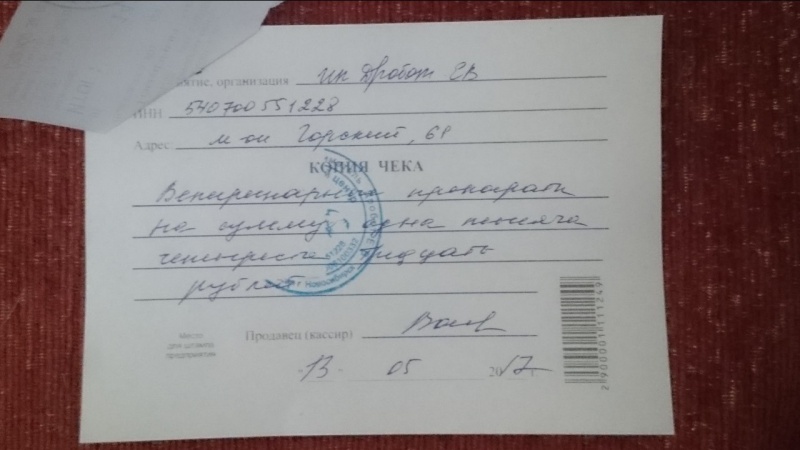 организация ИП Дробот СВ
ИНН 540700551228
Адрес: м-он Горский, 68
КОПИЯ ЧЕКА
Ветеринарные препараты
на сумму одна тысяча
четыреста тридцать
рублей
г. Новосибирск
Место
для штампа
предприятия
Продавец (кассир)
13 05 2017 г.
2900001111249